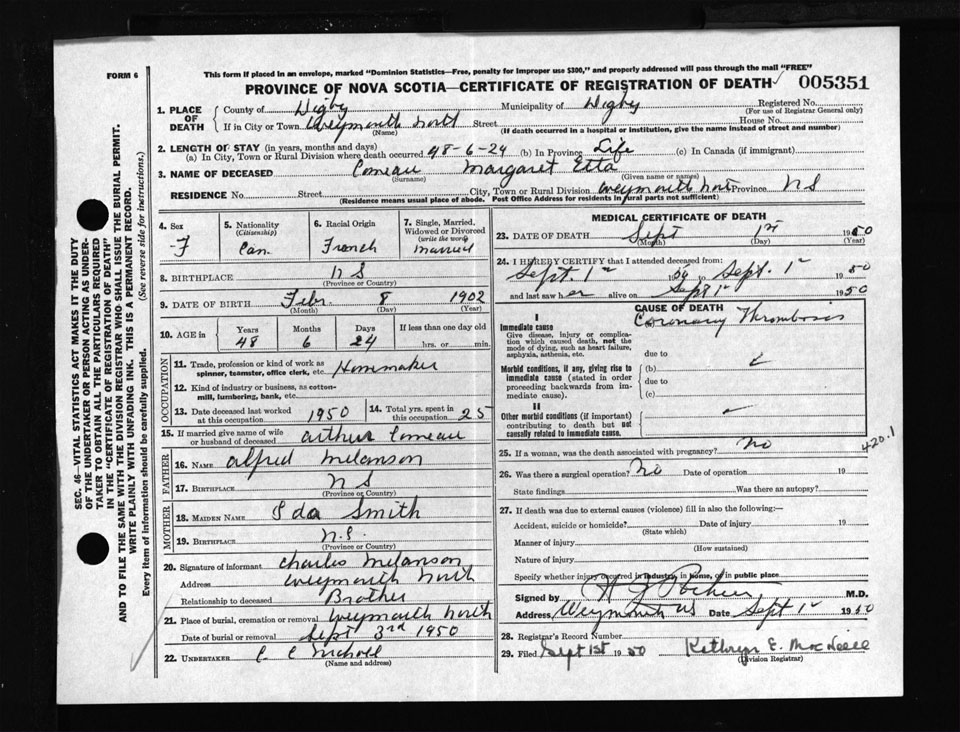 FORM 6
This form if placed in an envelope, marked "Dominion Statistics—Free, penalty for improper use $300," and properly addressed will pass through the mail "FREE"
PROVINCE OF NOVA SCOTIA—CERTIFICATE OF REGISTRATION OF DEATH 005351
1. PLACE OF DEATH
County of Digby Municipality of Digby Registered No.
(For use of Registrar General only)
If in City or Town Weymouth North Street House No.
(Name) (If death occurred in a hospital or institution, give the name instead of street and number)
2. LENGTH OF STAY (in years, months and days)
(a) In City, Town or Rural Division where death occurred 48-6-24 (b) In Province Life (c) In Canada (if immigrant)
3. NAME OF DECEASED Comeau Margaret Etta
(Surname) (Given name or names)
RESIDENCE No. Street City, Town or Rural Division Weymouth North Province N S
(Residence means usual place of abode. Post Office Address for residents in rural parts not sufficient)
4. Sex F
5. Nationality (Citizenship) Can.
6. Racial Origin French
7. Single, Married, Widowed or Divorced (write the word) Married
8. BIRTHPLACE N S
(Province or Country)
9. DATE OF BIRTH Feb. 8 1902
(Month) (Day) (Year)
10. AGE in Years 48 Months 6 Days 24 If less than one day old hrs. or min.
OCCUPATION
11. Trade, profession or kind of work as spinner, teamster, office clerk, etc. Homemaker
12. Kind of industry or business, as cotton-mill, lumbering, bank, etc.
13. Date deceased last worked at this occupation 1950
14. Total yrs. spent in this occupation 25
15. If married give name of wife or husband of deceased Arthur Comeau
FATHER
16. NAME Alfred Melanson
17. BIRTHPLACE N S
(Province or Country)
MOTHER
18. MAIDEN NAME Ida Smith
19. BIRTHPLACE N.S.
(Province or Country)
20. Signature of informant Charles Melanson
Address Weymouth North
Relationship to deceased Brother
21. Place of burial, cremation or removal Weymouth North
Date of burial or removal Sept 3rd 1950
22. UNDERTAKER
(Name and address)
MEDICAL CERTIFICATE OF DEATH
23. DATE OF DEATH Sept 1st 1950
(Month) (Day) (Year)
24. I HEREBY CERTIFY that I attended deceased from:
Sept. 1st 50 to Sept. 1st 1950
and last saw her alive on Sept 1st 1950
CAUSE OF DEATH
I
Immediate cause Coronary Thrombosis
Give disease, injury or complication which caused death, not the mode of dying, such as heart failure, asphyxia, asthenia, etc.
due to
Morbid conditions, if any, giving rise to immediate cause (stated in order proceeding backwards from immediate cause).
(b)
due to
(c)
II
Other morbid conditions (if important) contributing to death but not causally related to immediate cause.
420.1
25. If a woman, was the death associated with pregnancy? No
26. Was there a surgical operation? No Date of operation 19
State findings Was there an autopsy?
27. If death was due to external causes (violence) fill in also the following:—
Accident, suicide or homicide? Date of injury 19
(State which)
Manner of injury
(How sustained)
Nature of injury
Specify whether injury occurred in industry, in home, or in public place
Signed by M.D.
Address, Weymouth NS Date Sept 1st 1950
28. Registrar's Record Number
29. Filed Sept 1st 1950 Kathryn E. MacNeill
(Division Registrar)
SEC. 46—VITAL STATISTICS ACT MAKES IT THE DUTY
OF THE UNDERTAKER OR PERSON ACTING AS UNDER-
TAKER TO OBTAIN ALL THE PARTICULARS REQUIRED
IN THE "CERTIFICATE OF REGISTRATION OF DEATH"
AND TO FILE THE SAME WITH THE DIVISION REGISTRAR WHO SHALL ISSUE THE BURIAL PERMIT.
WRITE PLAINLY WITH UNFADING INK. THIS IS A PERMANENT RECORD.
Every item of information should be carefully supplied. (See reverse side for instructions.)